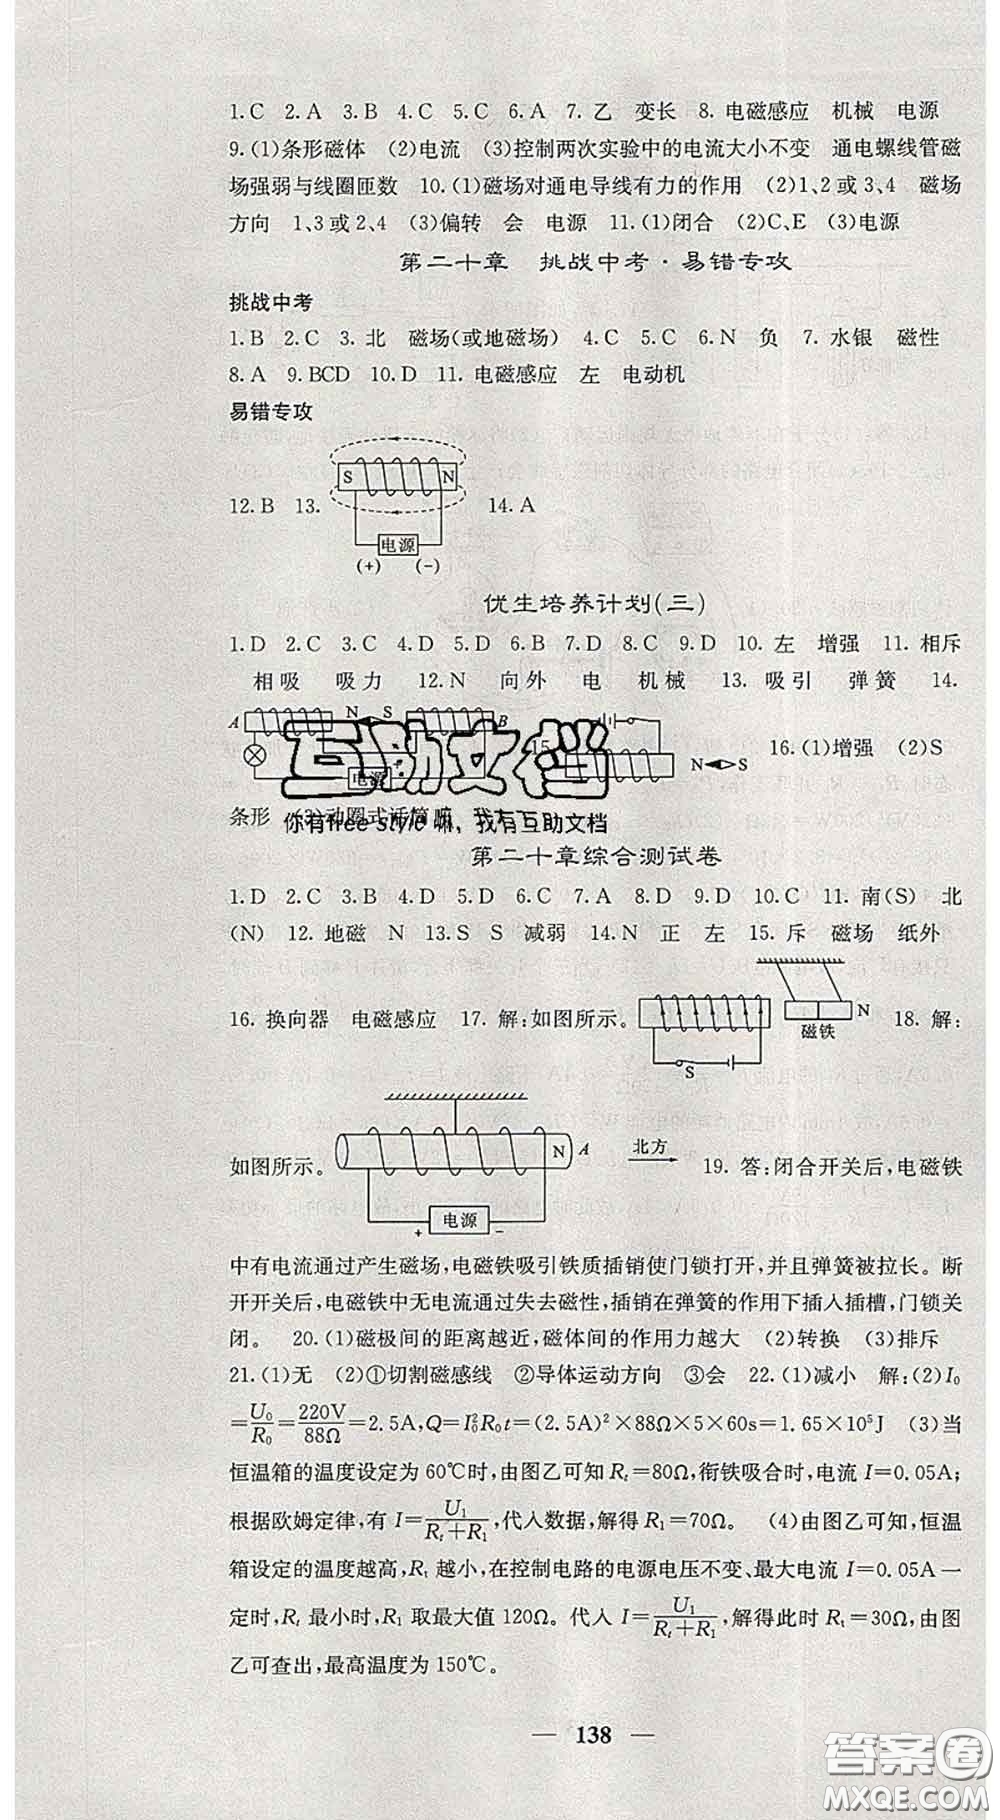 1.C 2.A 3.B 4.C 5.C 6.A 7.乙 变长 8.电磁感应 机械 电源
9.(1)条形磁体 (2)电流 (3)控制两次实验中的电流大小不变 通电螺线管磁
场强弱与线圈匝数 10.(1)磁场对通电导线有力的作用 (2)1、2或3、4 磁场
方向 1、3或2、4 (3)偏转 会 电源 11.(1)闭合 (2)C、E (3)电源
第二十章 挑战中考·易错专攻
挑战中考
1.B 2.C 3.北 磁场(或地磁场) 4.C 5.C 6.N 负 7.水银 磁性
8.A 9.BCD 10.D 11.电磁感应 左 电动机
易错专攻
S N
12.B 13. 14.A
电源
(+) (-)
优生培养计划(三)
1.D 2.C 3.C 4.D 5.D 6.B 7.D 8.C 9.D 10.左 增强 11.相斥
相吸 吸力 12.N 向外 电 机械 13.吸引 弹簧 14.
A N S B
15. N S 16.(1)增强 (2)S
电源
互助文档
条形 (3)动圈式话筒
你有free style嘛，我有互助文档
第二十章综合测试卷
1.D 2.C 3.B 4.D 5.D 6.C 7.A 8.D 9.D 10.C 11.南(S) 北
(N) 12.地磁 N 13.S S 减弱 14.N 正 左 15.斥 磁场 纸外
16.换向器 电磁感应 17.解:如图所示。 S 磁铁 N 18.解:
如图所示。 N A 北方 19.答:闭合开关后,电磁铁
+ 电源 -
中有电流通过产生磁场,电磁铁吸引铁质插销使门锁打开,并且弹簧被拉长。断
开开关后,电磁铁中无电流通过失去磁性,插销在弹簧的作用下插入插槽,门锁关
闭。 20.(1)磁极间的距离越近,磁体间的作用力越大 (2)转换 (3)排斥
21.(1)无 (2)①切割磁感线 ②导体运动方向 ③会 22.(1)减小 解:(2)I₀
=U₀/R₀=220V/88Ω=2.5A,Q=I₀²R₀t=(2.5A)²×88Ω×5×60s=1.65×10⁵J (3)当
恒温箱的温度设定为60℃时,由图乙可知Rₜ=80Ω,衔铁吸合时,电流I=0.05A;
根据欧姆定律,有I=U₁/(Rₜ+R₁),代入数据,解得R₁=70Ω。 (4)由图乙可知,恒温
箱设定的温度越高,Rₜ越小,在控制电路的电源电压不变、最大电流I=0.05A一
定时,Rₜ最小时,R₁取最大值120Ω。代入I=U₁/(Rₜ+R₁),解得此时Rₜ=30Ω,由图
乙可查出,最高温度为150℃。
— 138 —
答案圈
MXQE.COM